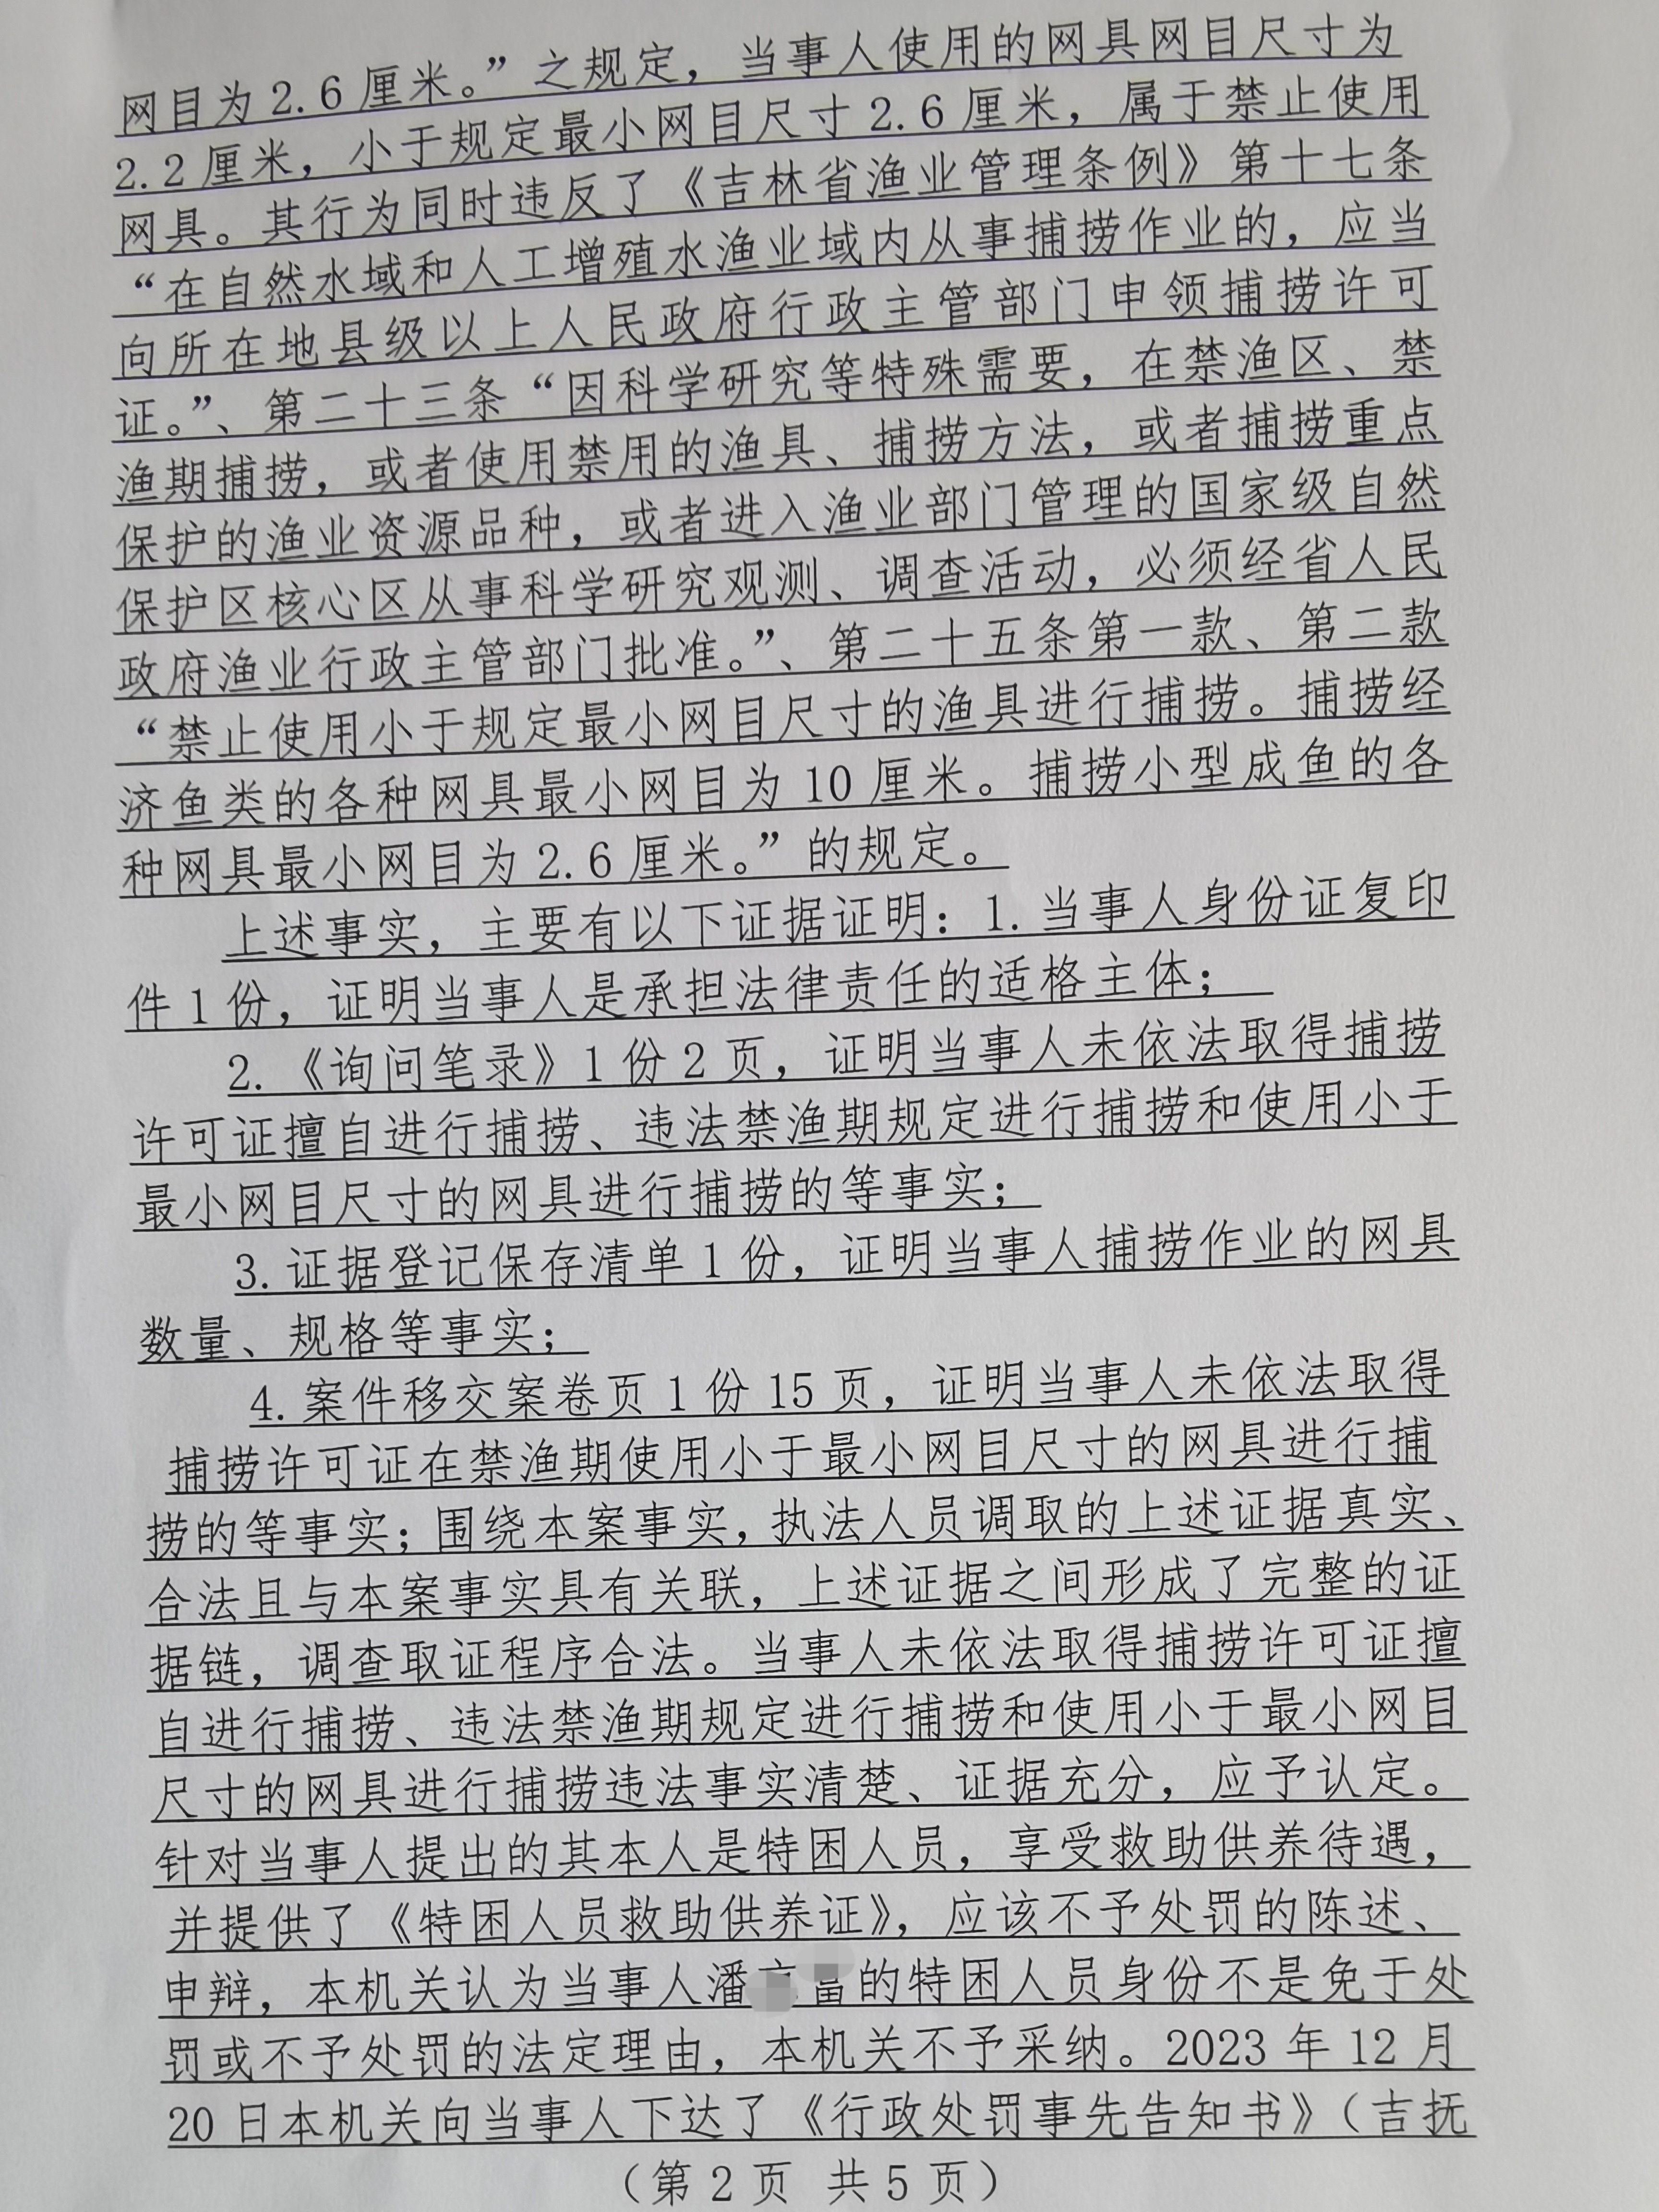 网目为 2.6 厘米。”之规定，当事人使用的网具网目尺寸为
2.2 厘米，小于规定最小网目尺寸 2.6 厘米，属于禁止使用
网具。其行为同时违反了《吉林省渔业管理条例》第十七条
“在自然水域和人工增殖水渔业域内从事捕捞作业的，应当
向所在地县级以上人民政府行政主管部门申领捕捞许可
证。”、第二十三条“因科学研究等特殊需要，在禁渔区、禁
渔期捕捞，或者使用禁用的渔具、捕捞方法，或者捕捞重点
保护的渔业资源品种，或者进入渔业部门管理的国家级自然
保护区核心区从事科学研究观测、调查活动，必须经省人民
政府渔业行政主管部门批准。”、第二十五条第一款、第二款
“禁止使用小于规定最小网目尺寸的渔具进行捕捞。捕捞经
济鱼类的各种网具最小网目为 10 厘米。捕捞小型成鱼的各
种网具最小网目为 2.6 厘米。”的规定。
上述事实，主要有以下证据证明：1. 当事人身份证复印
件 1 份，证明当事人是承担法律责任的适格主体；
2. 《询问笔录》1 份 2 页，证明当事人未依法取得捕捞
许可证擅自进行捕捞、违法禁渔期规定进行捕捞和使用小于
最小网目尺寸的网具进行捕捞的等事实；
3. 证据登记保存清单 1 份，证明当事人捕捞作业的网具
数量、规格等事实；
4. 案件移交案卷页 1 份 15 页，证明当事人未依法取得
捕捞许可证在禁渔期使用小于最小网目尺寸的网具进行捕
捞的等事实；围绕本案事实，执法人员调取的上述证据真实、
合法且与本案事实具有关联，上述证据之间形成了完整的证
据链，调查取证程序合法。当事人未依法取得捕捞许可证擅
自进行捕捞、违法禁渔期规定进行捕捞和使用小于最小网目
尺寸的网具进行捕捞违法事实清楚、证据充分，应予认定。
针对当事人提出的其本人是特困人员，享受救助供养待遇，
并提供了《特困人员救助供养证》，应该不予处罚的陈述、
申辩，本机关认为当事人潘的特困人员身份不是免于处
罚或不予处罚的法定理由，本机关不予采纳。2023 年 12 月
20 日本机关向当事人下达了《行政处罚事先告知书》（吉抚
（第 2 页 共 5 页）